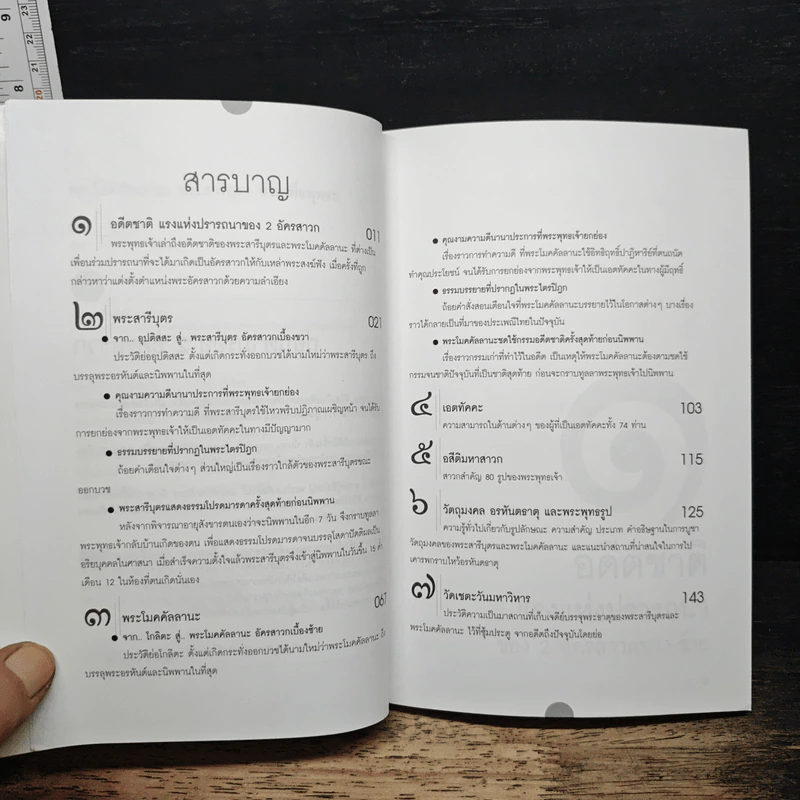 สารบาญ
๑ อดีตชาติ แรงแห่งปรารถนาของ 2 อัครสาวก 011
พระพุทธเจ้าเล่าถึงอดีตชาติของพระสารีบุตรและพระโมคคัลลานะ ที่ต่างเป็น
เพื่อนร่วมปรารถนาที่จะได้มาเกิดเป็นอัครสาวกให้กับเหล่าพระสงฆ์ฟัง เมื่อครั้งที่ถูก
กล่าวหาว่าแต่งตั้งตำแหน่งพระอัครสาวกด้วยความลำเอียง
๒ พระสารีบุตร 021
● จาก.. อุปติสสะ สู่.. พระสารีบุตร อัครสาวกเบื้องขวา
ประวัติย่ออุปติสสะ ตั้งแต่เกิดกระทั่งออกบวชได้นามใหม่ว่าพระสารีบุตร ถึง
บรรลุพระอรหันต์และนิพพานในที่สุด
● คุณงามความดีนานาประการที่พระพุทธเจ้ายกย่อง
เรื่องราวการทำความดี ที่พระสารีบุตรใช้ไหวพริบปฏิภาณเผชิญหน้า จนได้รับ
การยกย่องจากพระพุทธเจ้าให้เป็นเอตทัคคะในทางมีปัญญามาก
● ธรรมบรรยายที่ปรากฏในพระไตรปิฎก
ถ้อยคำเตือนใจต่างๆ ส่วนใหญ่เป็นเรื่องราวใกล้ตัวของพระสารีบุตรขณะ
ออกบวช
● พระสารีบุตรแสดงธรรมโปรดมารดาครั้งสุดท้ายก่อนนิพพาน
หลังจากพิจารณาอายุสังขารตนเองว่าจะนิพพานในอีก 7 วัน จึงกราบทูลลา
พระพุทธเจ้ากลับบ้านเกิดของตน เพื่อแสดงธรรมโปรดมารดาจนบรรลุโสดาปัตติผลเป็น
อริยบุคคลในศาสนา เมื่อสำเร็จความตั้งใจแล้วพระสารีบุตรจึงเข้าสู่นิพพานในวันขึ้น 15 ค่ำ
เดือน 12 ในห้องที่ตนเกิดนั่นเอง
๓ พระโมคคัลลานะ 067
● จาก.. โกลิตะ สู่.. พระโมคคัลลานะ อัครสาวกเบื้องซ้าย
ประวัติย่อโกลิตะ ตั้งแต่เกิดกระทั่งออกบวชได้นามใหม่ว่าพระโมคคัลลานะ ถึง
บรรลุพระอรหันต์และนิพพานในที่สุด
● คุณงามความดีนานาประการที่พระพุทธเจ้ายกย่อง
เรื่องราวการทำความดี ที่พระโมคคัลลานะใช้อิทธิฤทธิ์ปาฏิหาริย์ที่ตนถนัด
ทำคุณประโยชน์ จนได้รับการยกย่องจากพระพุทธเจ้าให้เป็นเอตทัคคะในทางผู้มีฤทธิ์
● ธรรมบรรยายที่ปรากฏในพระไตรปิฎก
ถ้อยคำสั่งสอนเตือนใจที่พระโมคคัลลานะบรรยายไว้ในโอกาสต่างๆ บางเรื่อง
ราวได้กลายเป็นที่มาของประเพณีไทยในปัจจุบัน
● พระโมคคัลลานะชดใช้กรรมอดีตชาติครั้งสุดท้ายก่อนนิพพาน
เรื่องราวกรรมเก่าที่ทำไว้ในอดีต เป็นเหตุให้พระโมคคัลลานะต้องตามชดใช้
กรรมจนชาติปัจจุบันที่เป็นชาติสุดท้าย ก่อนจะกราบทูลลาพระพุทธเจ้าไปนิพพาน
๔ เอตทัคคะ 103
ความสามารถในด้านต่างๆ ของผู้ที่เป็นเอตทัคคะทั้ง 74 ท่าน
๕ อสีติมหาสาวก 115
สาวกสำคัญ 80 รูปของพระพุทธเจ้า
๖ วัตถุมงคล อรหันตธาตุ และพระพุทธรูป 125
ความรู้ทั่วไปเกี่ยวกับรูปลักษณะ ความสำคัญ ประเภท คำอธิษฐานในการบูชา
วัตถุมงคลของพระสารีบุตรและพระโมคคัลลานะ และแนะนำสถานที่น่าสนใจในการไป
เคารพกราบไหว้อรหันตธาตุ
๗ วัดเชตะวันมหาวิหาร 143
ประวัติความเป็นมาสถานที่เก็บเจดีย์บรรจุพระธาตุของพระสารีบุตรและ
พระโมคคัลลานะ ไว้ที่ซุ้มประตู จากอดีตถึงปัจจุบันโดยย่อ